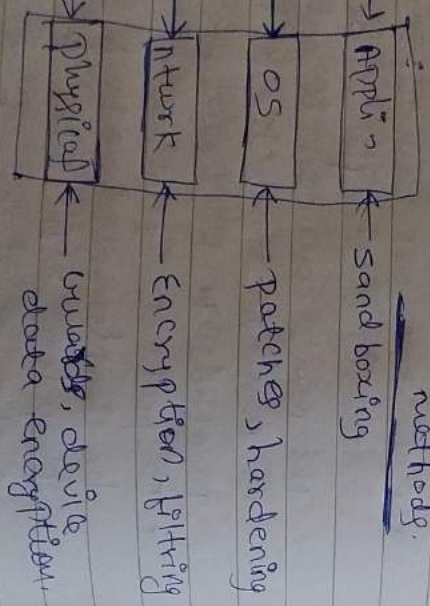 methods.
Appliⁿ ← sandboxing
OS ← patches, hardening
ntwrk ← Encryption, filtring
physical ← Guards, device
data encryption.